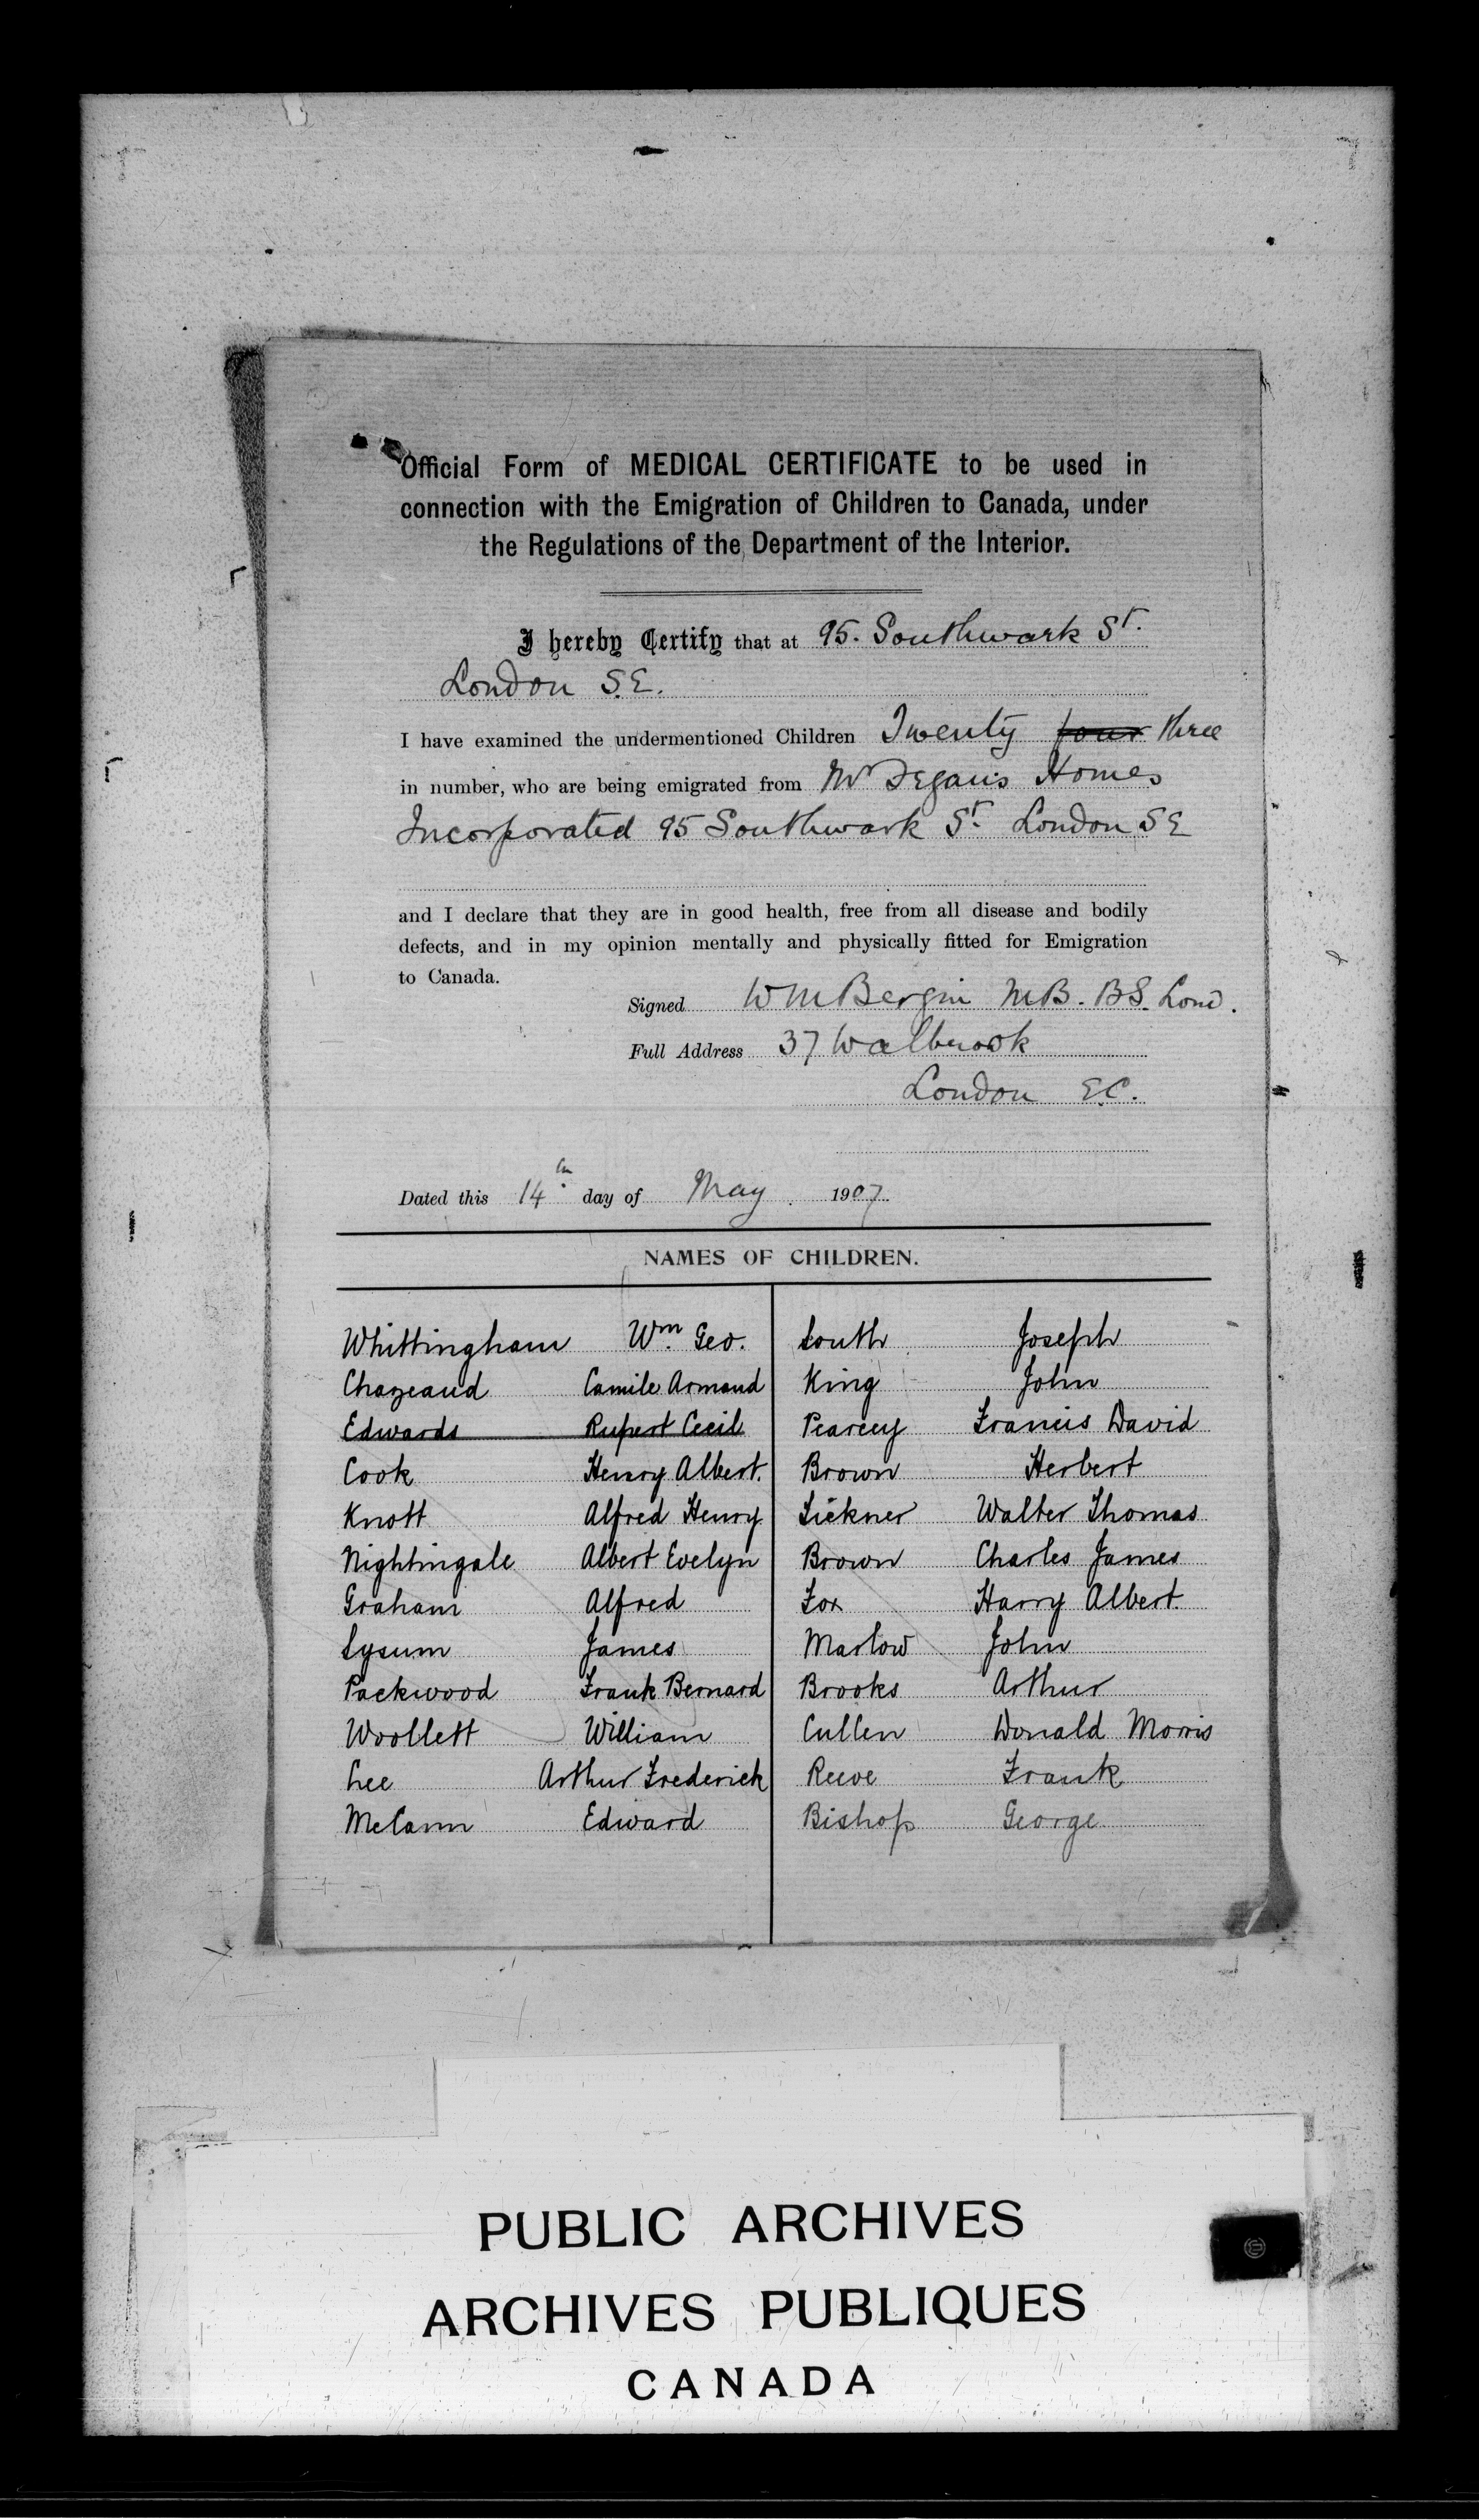 Official Form of MEDICAL CERTIFICATE to be used in
connection with the Emigration of Children to Canada, under
the Regulations of the Department of the Interior.
I hereby Certify that at 95. Southwark St.
London S.E.
I have examined the undermentioned Children Twenty four three
in number, who are being emigrated from Mr Fegan's Homes
Incorporated 95 Southwark St. London SE
and I declare that they are in good health, free from all disease and bodily
defects, and in my opinion mentally and physically fitted for Emigration
to Canada.
Signed W M Bergin M.B. B.S. Lond.
Full Address 37 Walbrook
London E.C.
Dated this 14th day of May 1907
NAMES OF CHILDREN.
Whittingham Wm. Geo. South Joseph
Chazeaud Camile Armand King John
Edwards Rupert Cecil Pearcey Francis David
Cook Henry Albert. Brown Herbert
Knott Alfred Henry Sickner Walter Thomas
Nightingale Albert Evelyn Brown Charles James
Graham Alfred Fox Harry Albert.
Sysum James Marlow John
Packwood Frank Bernard Brooks Arthur
Woollett William Cullen Donald Morris
Lee Arthur Frederick Reeve Frank
McCann Edward Bishop George
PUBLIC ARCHIVES
ARCHIVES PUBLIQUES
CANADA